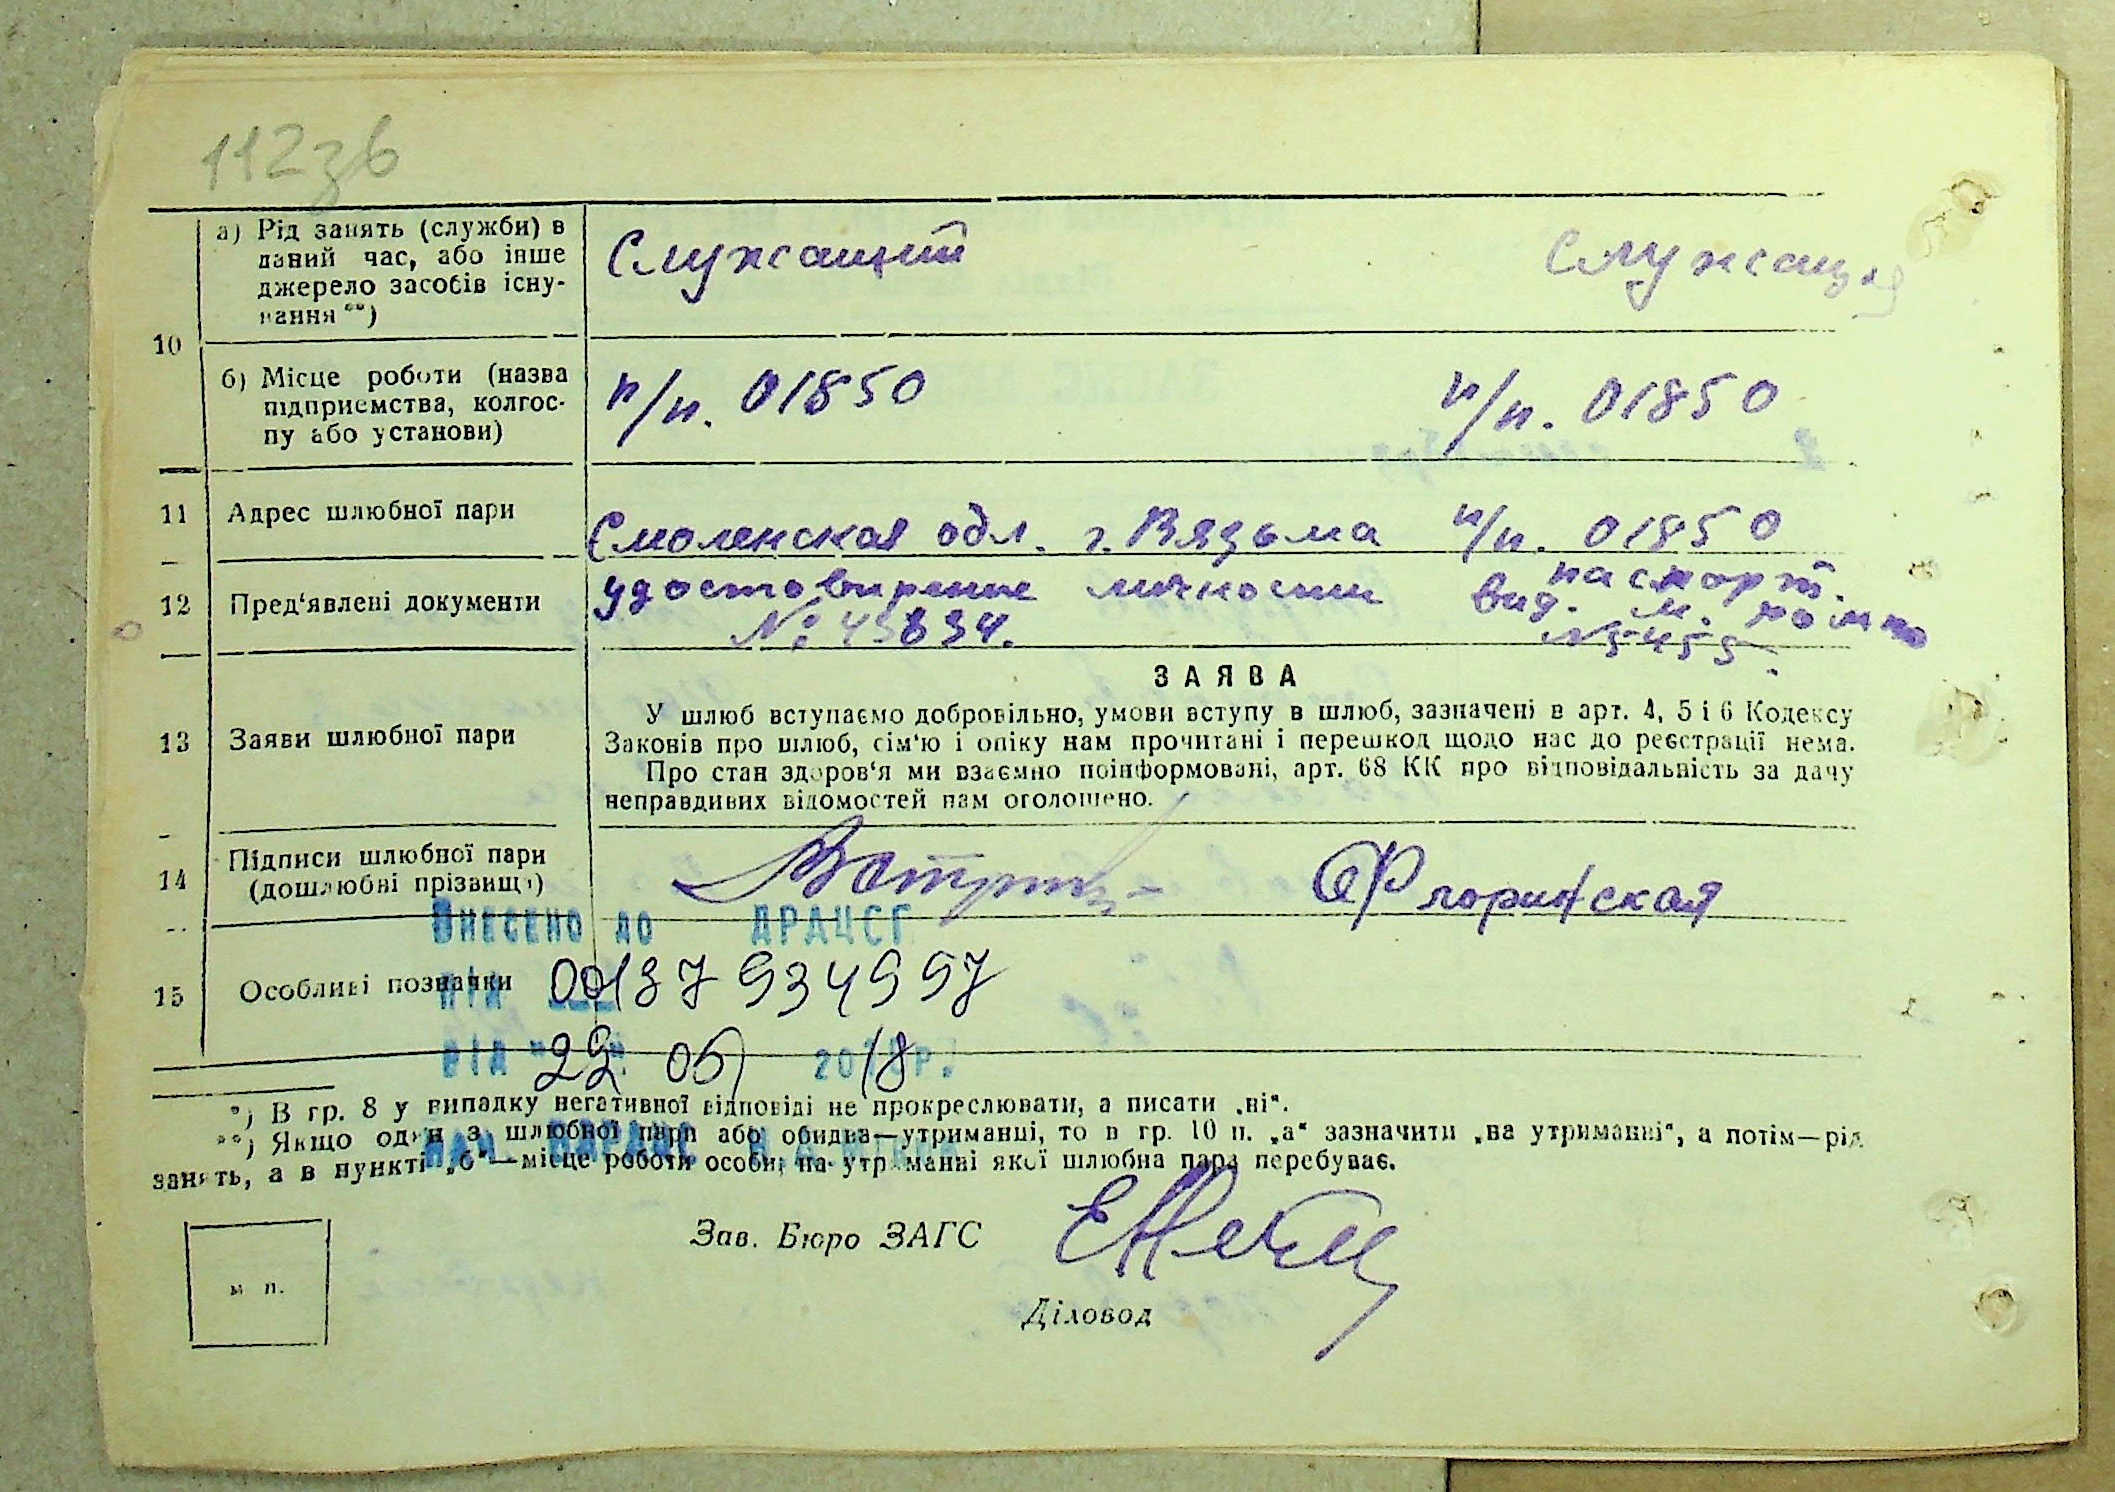 112зв
а) Рід занять (служби) в
даний час, або інше
джерело засобів існу-
вання **)
Служащий Служащая
10
б) Місце роботи (назва
підприємства, колгос-
пу або установи)
п/п. 01850 п/п. 01850
11 Адрес шлюбної пари Смоленская обл. г. Вязьма п/п. 01850
12 Пред'явлені документи удостовирение личности паспорт.
вид. м.
№ 45834. N 5455
13 Заяви шлюбної пари
ЗАЯВА
У шлюб вступаємо добровільно, умови вступу в шлюб, зазначені в арт. 4, 5 і 6 Кодексу
Законів про шлюб, сім'ю і опіку нам прочитані і перешкод щодо нас до реєстрації нема.
Про стан здоров'я ми взаємно поінформовані, арт. 68 КК про відповідальність за дачу
неправдивих відомостей нам оголошено.
14 Підписи шлюбної пари
(дошлюбні прізвища)
Флоринская
Внесено до ДРАЦСГ
15 Особливі позначки
під 00137934997
від "22" 05 2018р.
*) В гр. 8 у випадку негативної відповіді не прокреслювати, а писати „ні“.
**) Якщо один з шлюбної пари або обидва—утриманці, то в гр. 10 п. „а“ зазначити „на утриманні“, а потім—рід
занять, а в пункті „б“—місце роботи особи, на утриманні якої шлюбна пара перебуває.
Зав. Бюро ЗАГС
Діловод
м п.